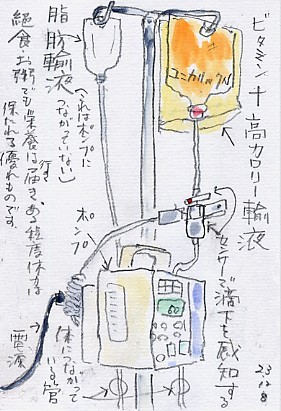 ビタミン+高カロリー輸液
ユニカリックN
センサーで滴下を感知する
60
23.12.8
脂肪輸液
(これはポンプに
つながっていない)
絶食・お粥でも栄養は届き、ある程度体力は
保たれる優れものです。
ポンプ
体につながって
いる管
電源